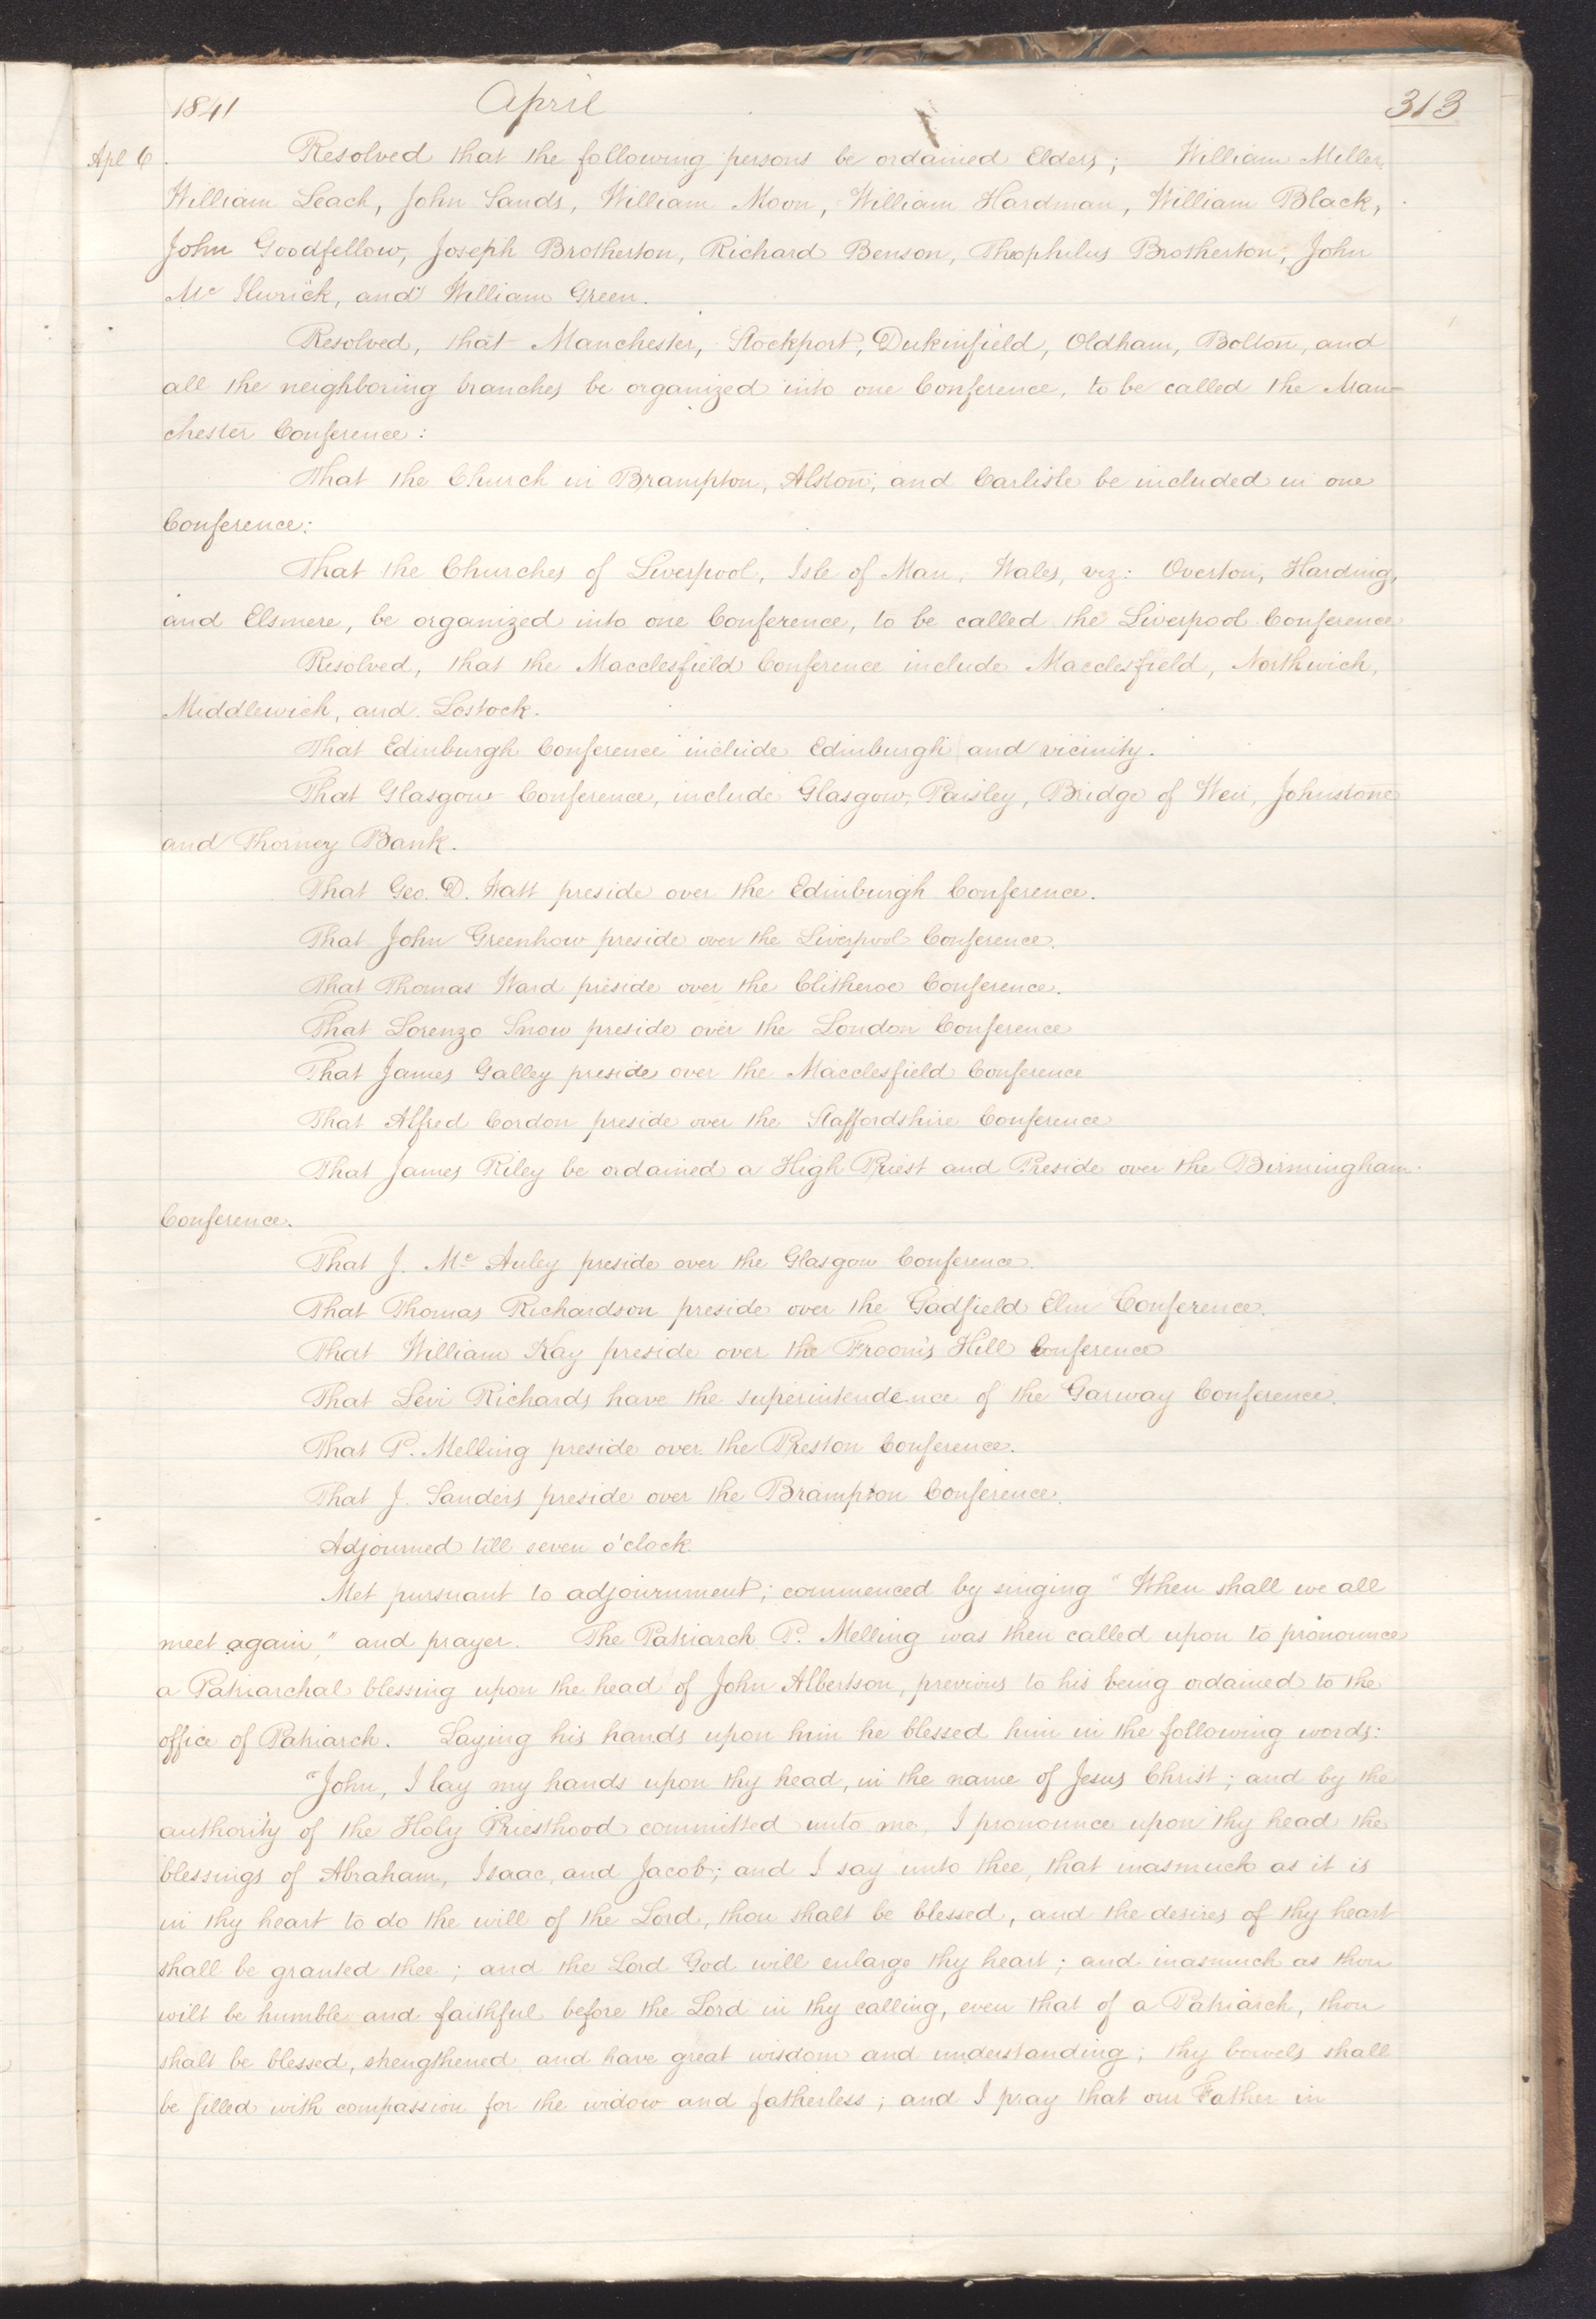 1841 April 313
Apl 6. Resolved that the following persons be ordained Elders; William Miller,
William Leach, John Sands, William Moon, William Hardman, William Black,
John Goodfellow, Joseph Brotherton, Richard Benson, Theophilus Brotherton, John
Mc Ilwrick, and William Green.
Resolved, that Manchester, Stockport, Dukinfield, Oldham, Bolton, and
all the neighboring branches be organized into one Conference, to be called the Man=
chester Conference:
That the Church in Brampton, Alston, and Carlisle be included in one
Conference:
That the Churches of Liverpool, Isle of Man, Wales, viz: Overton, Harding,
and Elsmere, be organized into one Conference, to be called the Liverpool Conference
Resolved, that the Macclesfield Conference include Macclesfield, Northwich,
Middlewich, and Lostock.
That Edinburgh Conference include Edinburgh and vicinity.
That Glasgow Conference, include Glasgow, Paisley, Bridge of Weir, Johnstone
and Thorney Bank.
That Geo. D. Watt preside over the Edinburgh Conference.
That John Greenhow preside over the Liverpool Conference.
That Thomas Ward preside over the Clitheroe Conference.
That Lorenzo Snow preside over the London Conference
That James Galley preside over the Macclesfield Conference
That Alfred Cordon preside over the Staffordshire Conference
That James Riley be ordained a High Priest and Preside over the Birmingham
Conference.
That J. Mc Auley preside over the Glasgow Conference.
That Thomas Richardson preside over the Gadfield Elm Conference.
That William Kay preside over the Froom's Hill Conference
That Levi Richards have the superintendence of the Garway Conference.
That P. Melling preside over the Preston Conference.
That J. Sanders preside over the Brampton Conference.
Adjourned till seven o'clock.
Met pursuant to adjournment; commenced by singing "When shall we all
meet again," and prayer. The Patriarch P. Melling was then called upon to pronounce
a Patriarchal blessing upon the head of John Albertson, previous to his being ordained to the
office of Patriarch. Laying his hands upon him he blessed him in the following words:
"John, I lay my hands upon thy head, in the name of Jesus Christ; and by the
authority of the Holy Priesthood committed unto me, I pronounce upon thy head the
blessings of Abraham, Isaac, and Jacob; and I say unto thee, that inasmuch as it is
in thy heart to do the will of the Lord, thou shalt be blessed, and the desires of thy heart
shall be granted thee; and the Lord God will enlarge thy heart; and inasmuch as thou
wilt be humble and faithful before the Lord in thy calling, even that of a Patriarch, thou
shalt be blessed, strengthened and have great wisdom and understanding; thy bowels shall
be filled with compassion for the widow and fatherless; and I pray that our Father in